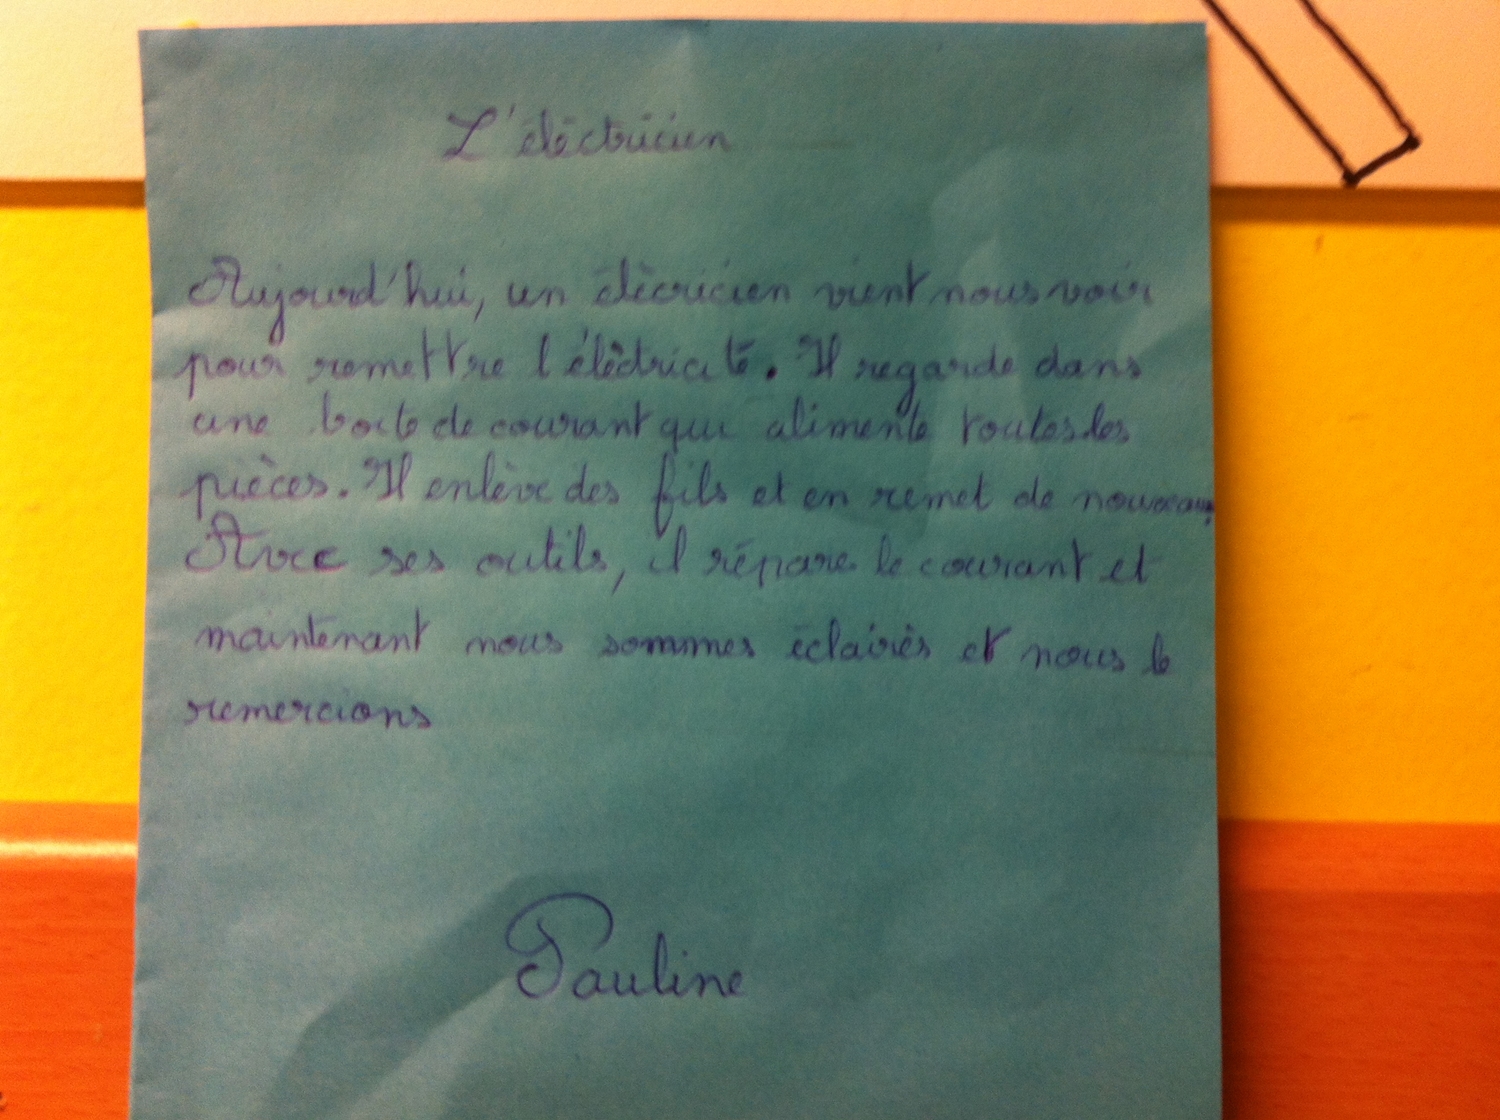 L'éléctricien
Aujourd'hui, un élècricien vient nous voir
pour remettre l'éléctricité. Il regarde dans
une boite de courant qui alimente toutes les
pièces. Il enlève des fils et en remet de nouveaux.
Avec ses outils, il répare le courant et
maintenant nous sommes éclairés et nous le
remercions
Pauline